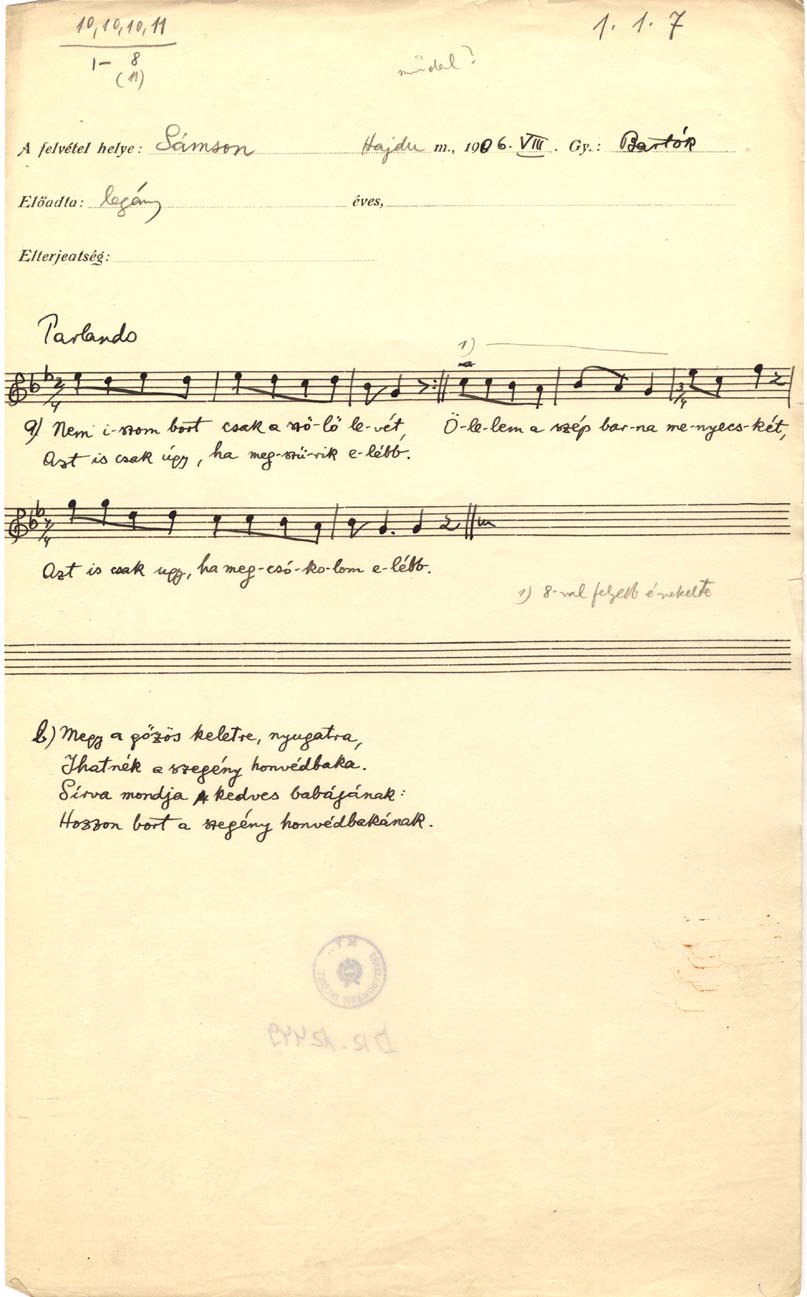 10, 10, 10, 11
1– 8
(11)
1. 1. 7
műdal?
A felvétel helye: Sámson Hajdu m., 1906. VIII. Gy.: Bartók
Előadta: legény éves,
Elterjeatség:
Parlando
1)
2/4
3/4
a) Nem i-szom bort csak a sző-lő le-vét, Ö-le-lem a szép bar-na me-nyecs-két,
Azt is csak úgy, ha meg-szű-rik e-lébb.
2/4
Azt is csak ugy, ha meg-csó-ko-lom e-lébb.
1) 8-val feljebb énekelte
b) Megy a gőzös keletre, nyugatra,
Ihatnék a szegény honvédbaka.
Sírva mondja kedves babájának:
Hozzon bort a szegény honvédbakának.